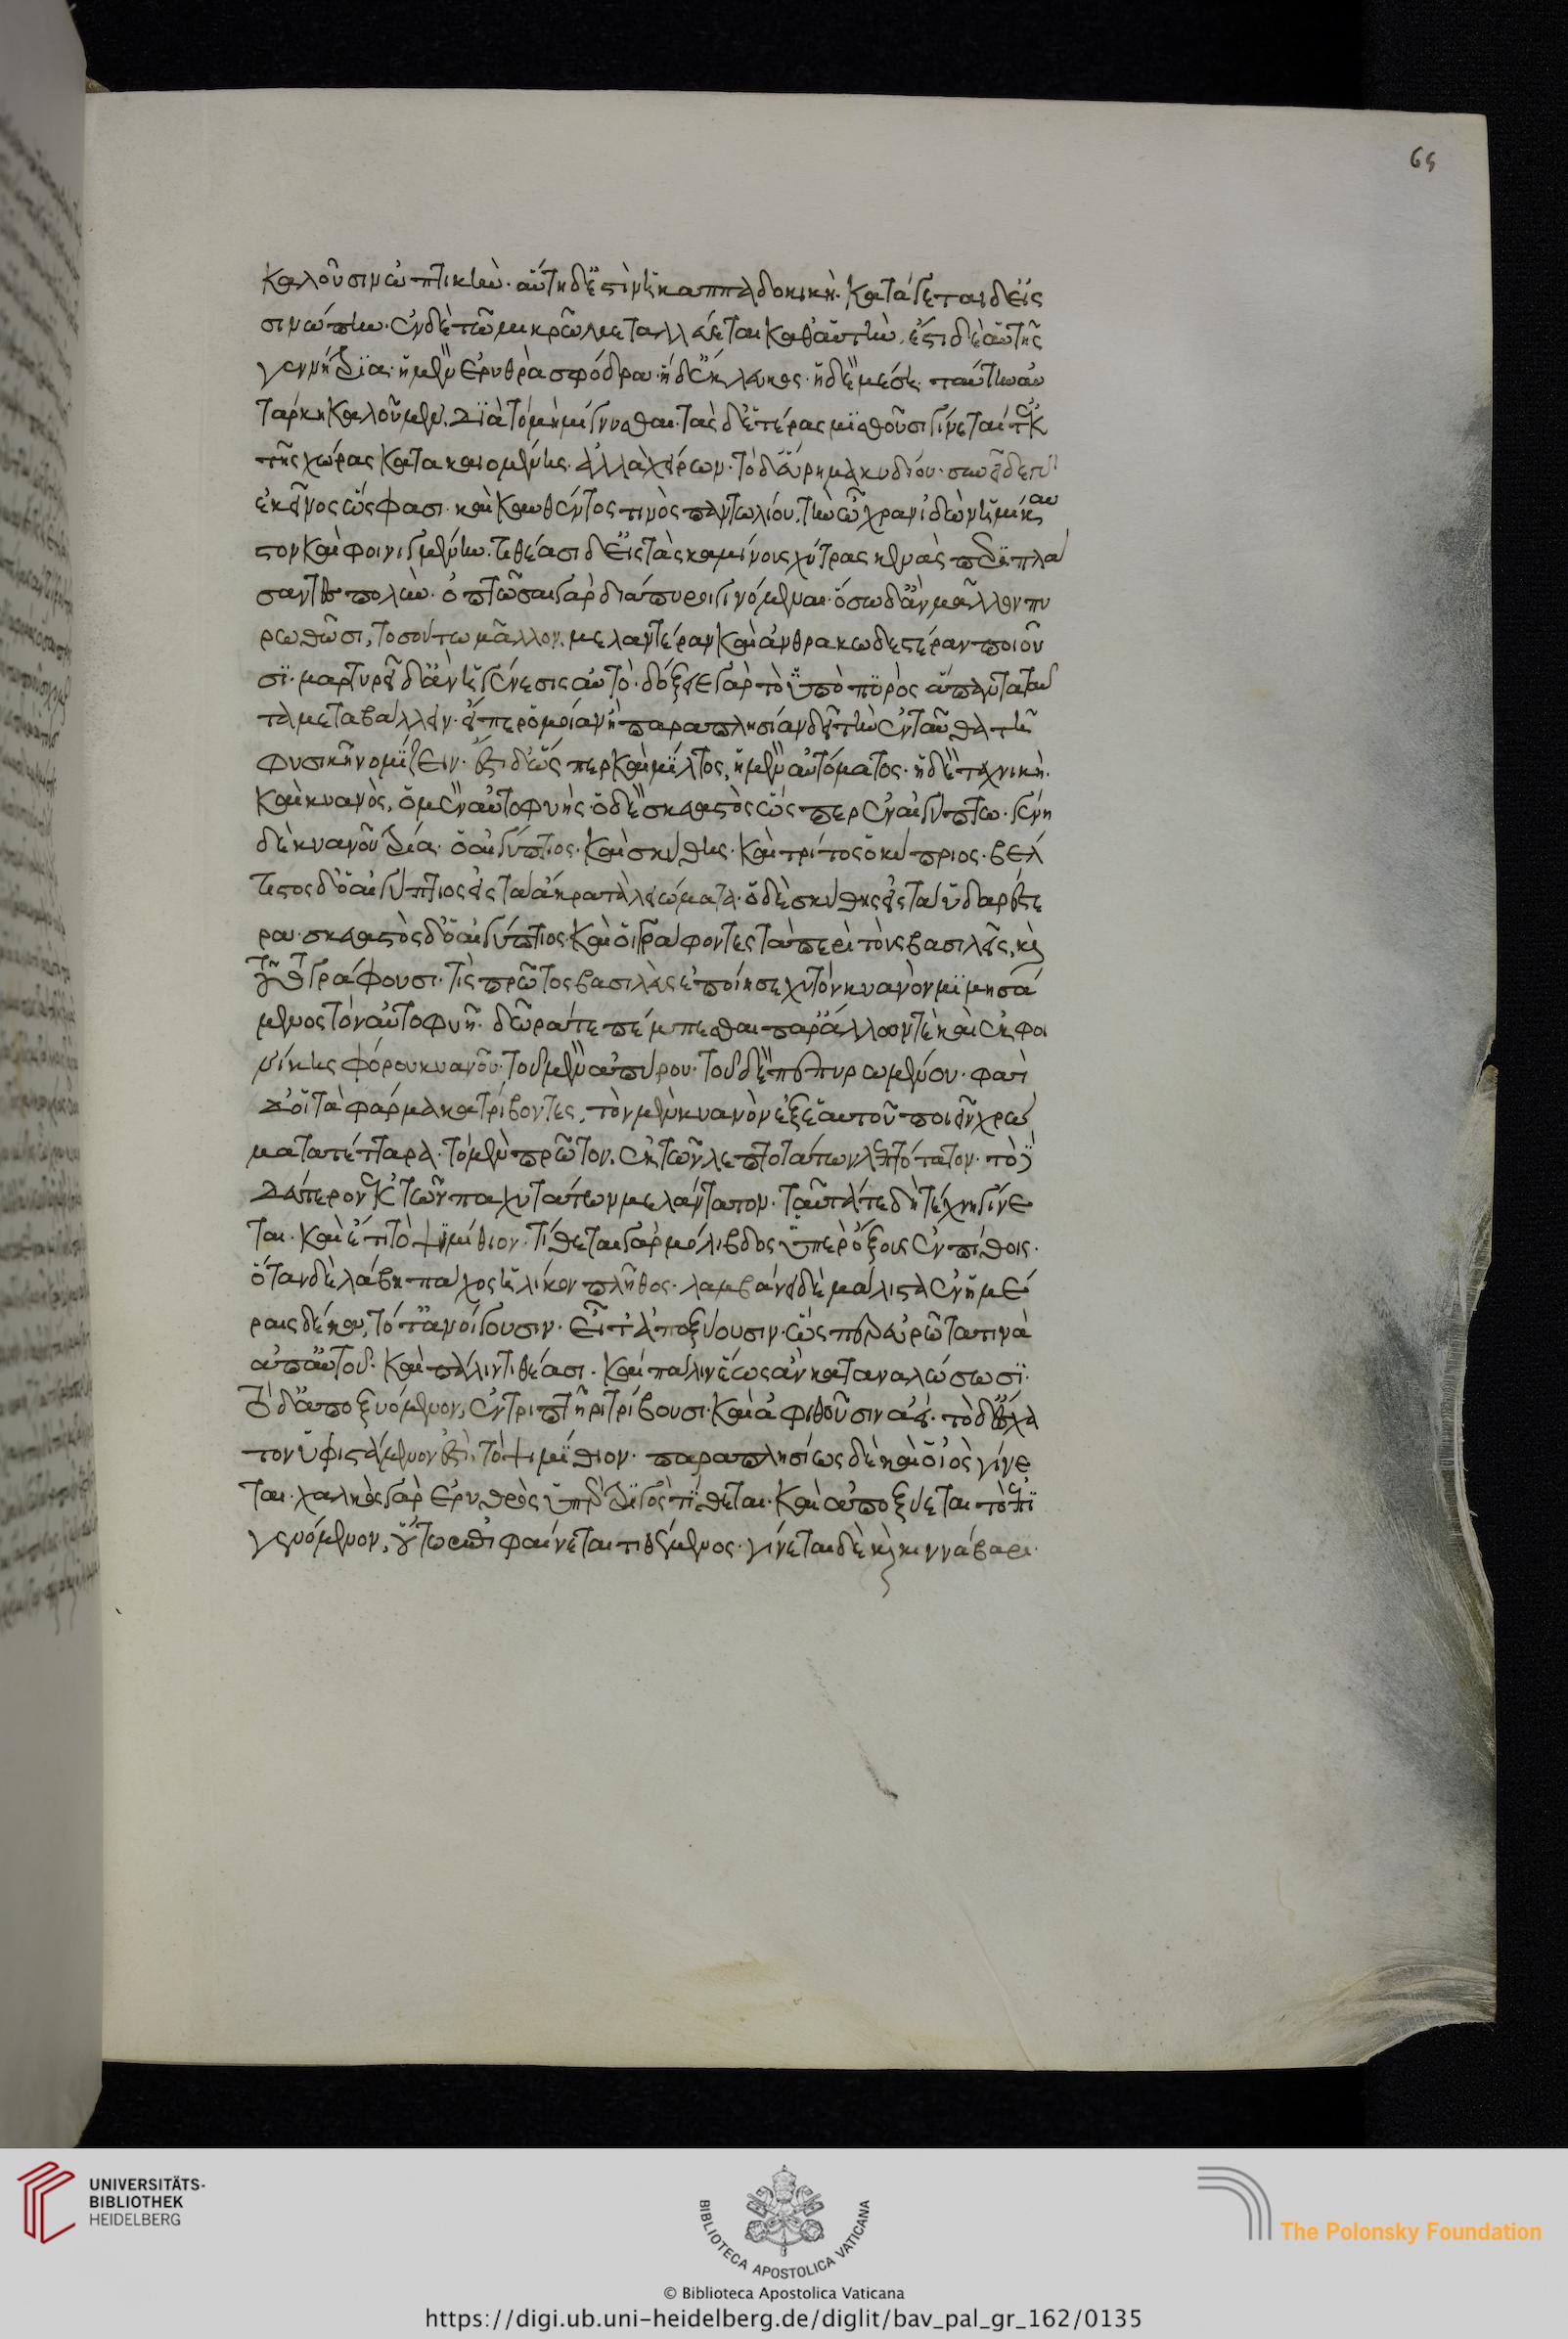 65
καλοῦσι σινωπικήν. αὕτη δ' ἐστὶν ἡ καππαδοκικὴ. κατάγεται δ' εἰς
σινώπην. ἐν δὲ τῶ μικρῶ μεταλλεύεται καθ' αὑτὴν. ἔστι δὲ αὐτῆς
γένη τρία. ἡ μὲν ἐρυθρὰ σφόδρα. ἡ δ' ἔκλευκος. ἡ δὲ μέση. ταύτην αὐ
τάρκη καλοῦμεν. διὰ τὸ μὴ μίγνυσθαι. τὰς δ' ἑτέρας μιγνύουσι γίνεται δὲ ἐκ
τῆς ὤχρας κατακαιομένης. ἀλλὰ χείρων. τὸ δ' εὕρημα κυδίου. συνεῖδε γὰρ
ἐκεῖνος ὥς φασι. κατακαυθέντος τινὸς πανδοκείου. τὴν ὤχραν ἰδὼν ἡμίκαυ
στον καὶ φοινιγμένην. τιθέασι δ' εἰς τὰς καμίνους χύτρας κενὰς περιπλά
σαντες πηλῶ. ὀπτῶσαι γὰρ διάπυροι γινόμεναι. ὅσω δ' ἂν μᾶλλον πυ
ρωθῶσι, τοσούτω μᾶλλον μελαντέραν καὶ ἀνθρακωδεστέραν ποιοῦ
σι. μαρτυρεῖ δ' ἂν ἡ γένεσις αὐτὸ. δόξειε γὰρ τὸ ὑπὸ πυρὸς ἅπαντα ταῦ
τα μεταβάλλειν. εἴπερ ὁμοίαν ἢ παραπλησίαν δεῖ τὴν ἐνταῦθα τῆ
φυσικῆ νομίζειν. ἔστι δ' ὥς περ καὶ μίλτος, ἡ μὲν αὐτόματος. ἡ δὲ τεχνικὴ.
καὶ κυανὸς, ὁ μὲν αὐτοφυὴς. ὁ δὲ σκευαστὸς ὥς περ ἐν αἰγύπτω. γένη
δὲ κυανοῦ τρία. ὁ αἰγύπτιος. καὶ σκύθης. καὶ τρίτος ὁ κύπριος. βέλ
τιστος δ' ὁ αἰγύπτιος εἰς τὰ ἄκρατα λειώματα. ὁ δὲ σκύθης εἰς τὰ ὑδαρέστε
ρα. σκευαστὸς δ' ὁ αἰγύπτιος. καὶ οἱ γράφοντες τὰ περὶ τοὺς βασιλεῖς, καὶ
τοῦτο γράφουσι. τίς πρῶτος βασιλεὺς ἐποίησε χυτὸν κυανὸν μιμησά
μενος τὸν αὐτοφυῆ. δῶρά τε πέμπεσθαι παρ' ἄλλων τὲ καὶ ἐκ φοι
νίκης φόρον κυανοῦ. τοῦ μὲν ἀπύρου. τοῦ δὲ πεπυρωμένου. φασὶ
δ' οἱ τὰ φάρμακα τρίβοντες, τὸν μὲν κυανὸν ἐξ ἑαυτοῦ ποιεῖν χρώ
ματα τέτταρα. τὸ μὲν πρῶτον, ἐκ τῶν λεπτοτάτων λευκότατον. τὸ δὲ
δεύτερον ἐκ τῶν παχυτάτων μελάντατον. ταῦτά τε δὴ τέχνη γίνε
ται. καὶ ἔτι τὸ ψιμύθιον. τίθεται γὰρ μόλιβδος ὑπὲρ ὄξους ἐν πίθοις.
ὅταν δὲ λάβη πάχος ἡλίκον πλῆθος. λαμβάνει δὲ μάλιστα ἐν ἡμέ
ραις δέκα, τότ' ἀνοίγουσιν. εἶτ' ἀποξύουσιν. ὥς περ εὐρῶτά τινα
ἀπ' αὐτοῦ. καὶ πάλιν τιθέασι. καὶ πάλιν ἕως ἂν καταναλώσωσι.
τὸ δ' ἀποξυόμενον, ἐν τριπτῆρι τρίβουσι. καὶ ἀφηθοῦσιν ἀεί. τὸ δ' ἔσχα
τον ὑφιστάμενον ἐστὶ, τὸ ψιμίθιον. παραπλησίως δὲ καὶ ὁ ἰὸς γίνε
ται. χαλκὸς γὰρ ἐρυθρὸς ὑπὲρ τρυγὸς τίθεται. καὶ ἀποξύεται τὸ ἐπι
γενόμενον. οὕτω ἐπιφαίνεται τιθέμενος. γίνεται δὲ καὶ κιννάβαρι.
UNIVERSITÄTS-
BIBLIOTHEK
HEIDELBERG
BIBLIOTECA APOSTOLICA VATICANA
The Polonsky Foundation
© Biblioteca Apostolica Vaticana
https://digi.ub.uni-heidelberg.de/diglit/bav_pal_gr_162/0135